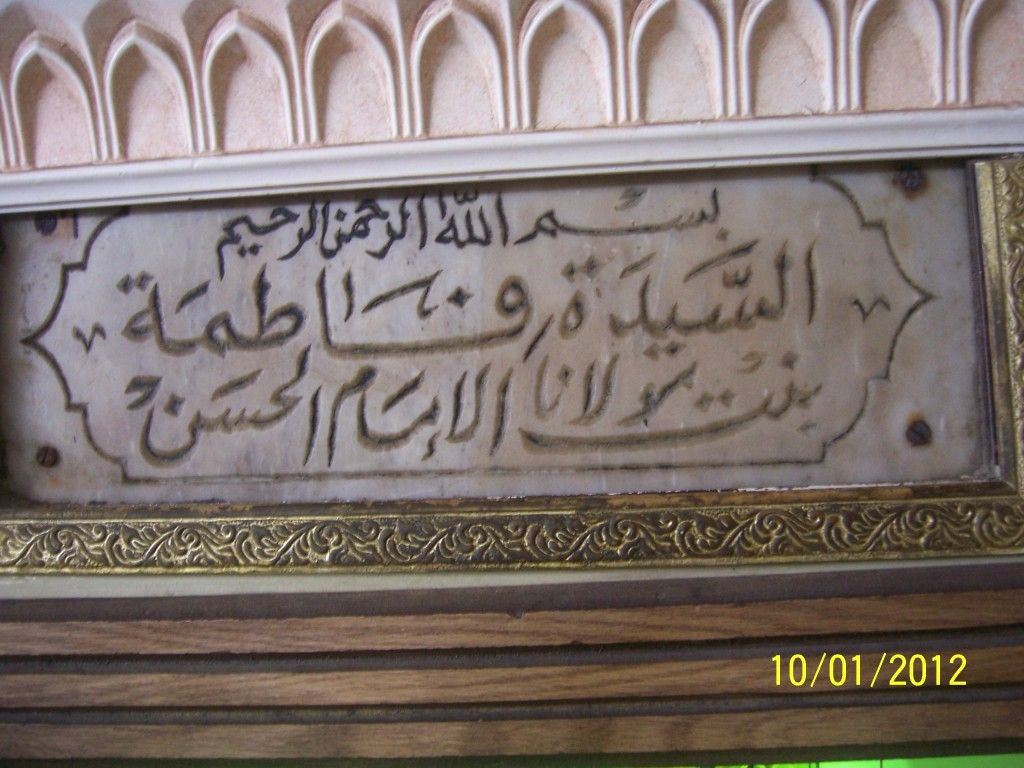 بسم الله الرحمن الرحيم
السَّيِدَة فاطمَة
بنت مولانا الإمام الحسَن
10/01/2012